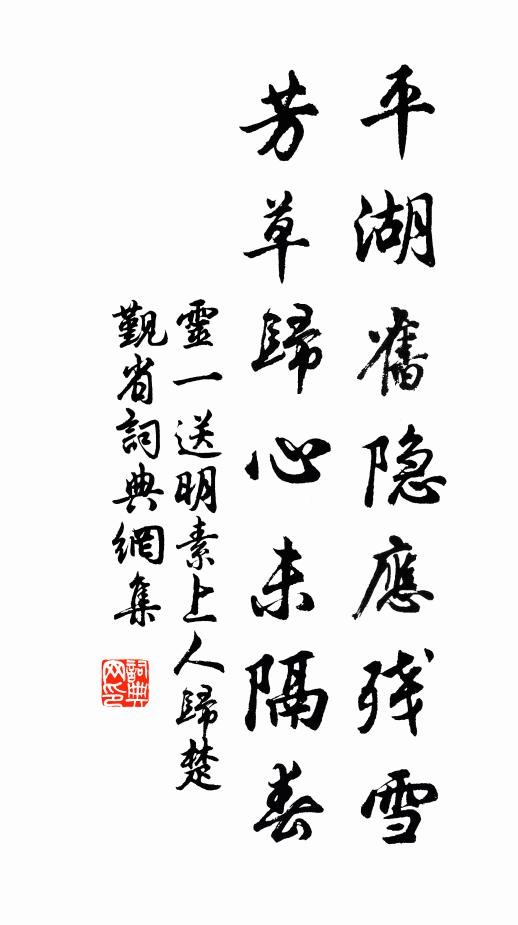 平湖舊隐應殘雪
芳草歸心未隔春
靈一送明素上人歸楚
覲省詞典網集
詞典网印